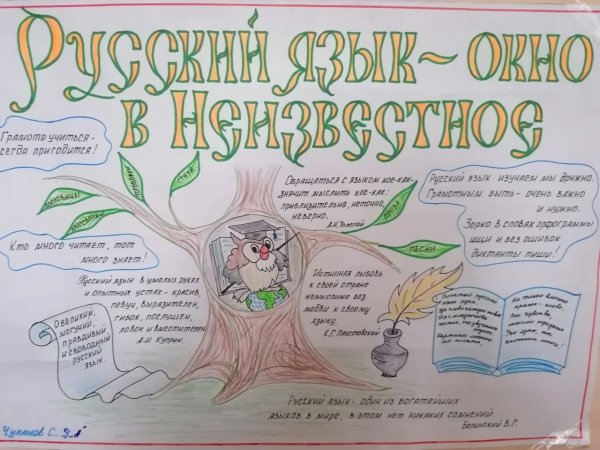 Русский язык – окно
в Неизвестное
Грамоте учиться -
всегда пригодится!
Пословицы
стихи
проза
песни
Обращаться с языком кое-как-
значит мыслить кое-как:
приблизительно, неточно,
неверно.
А.Н. Толстой
Русский язык изучаем мы дружно.
Грамотным быть - очень важно
и нужно.
Зорко в словах орфограммы
ищи и без ошибок
диктанты пиши!
Кто много читает, тот
много знает!
Русский язык в умелых руках
и опытных устах - красив,
певуч, выразителен,
гибок, послушен,
ловок и вместителен.
А.И. Куприн.
Истинная любовь
к своей стране
немыслима без
любви к своему
языку.
К.Г. Паустовский
О великий,
могучий,
правдивый
и свободный
русский
язык.
Русский язык - один из богатейших
языков в мире, в этом нет никаких сомнений
Белинский В.Г.
Чупанов С.